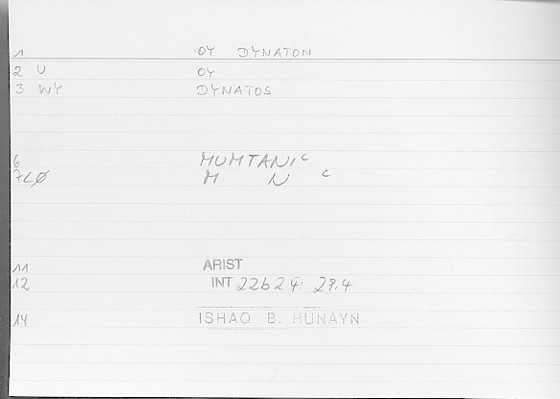 1 OY DYNATON
2 U OY
3 WY DYNATOS
6 MUMTANI C
7 LØ M N C
11 ARIST
12 INT 22b24; 29,4
14 ISHAQ B. HUNAYN